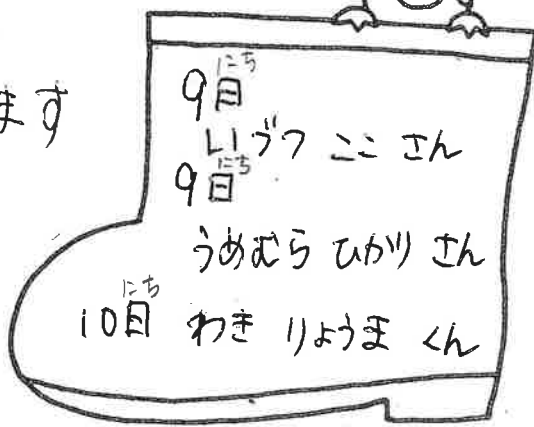 ます
9日
にち
いづつ ここ さん
9日
にち
うめむら ひかり さん
にち
10日 わき りょうま くん